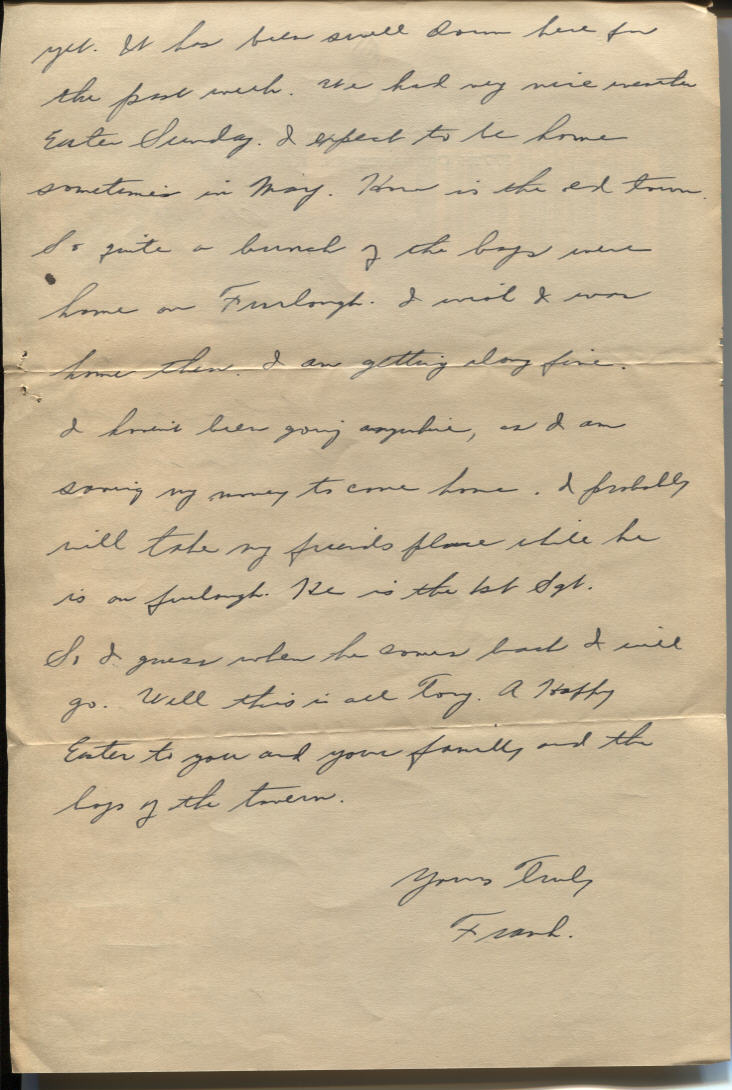 yet. It has been swell down here for
the past week. We had very nice weather
Easter Sunday. I expect to be home
sometimes in May. How is the old town.
So quite a bunch of the boys were
home on Furlough. I wish I was
home then. I am getting along fine.
I haven't been going anywhere, as I am
saving my money to come home. I probably
will take my friends place while he
is on furlough. He is the 1st Sgt.
So I guess when he comes back I will
go. Well this is all Tony. A Happy
Easter to you and your family and the
boys of the tavern.
Yours Truly
Frank.